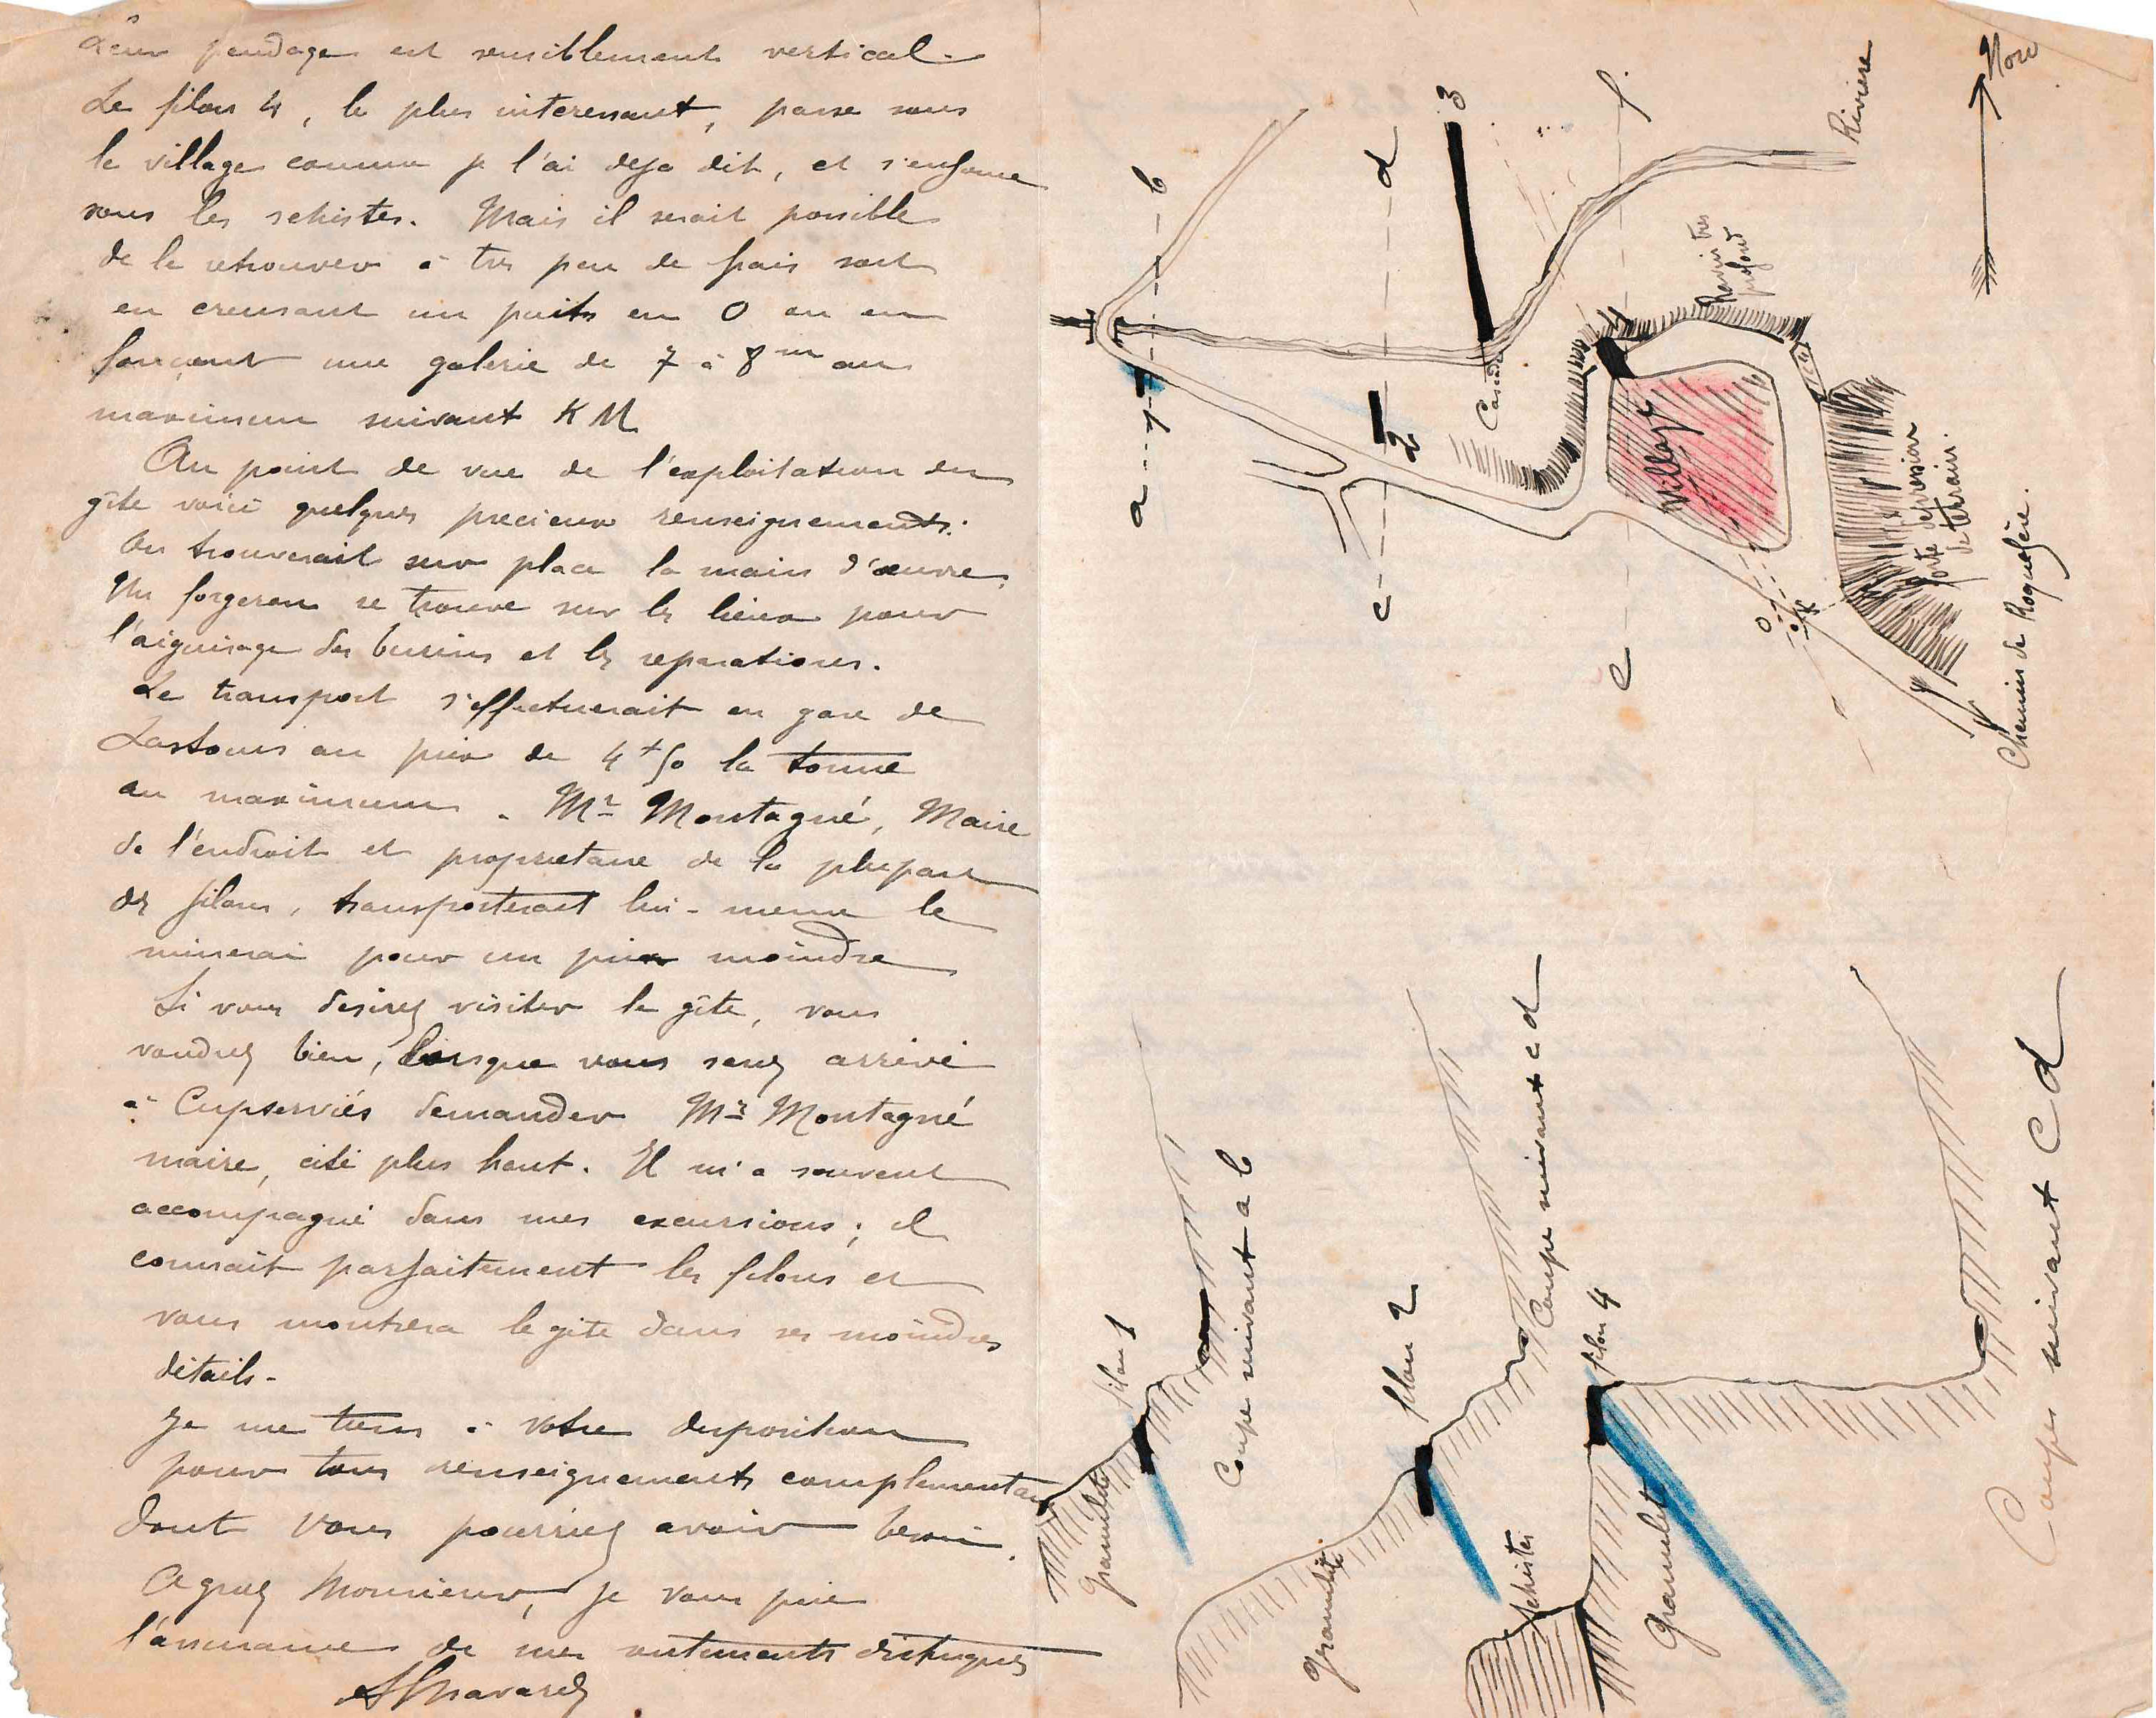 Leur pendage est sensiblement vertical.
Le filon 4, le plus interessant, passe sous
le village comme je l'ai deja dit, et s'enfonce
sous les schistes. Mais il serait possible
de le retrouver à tres peu de frais soit
en creusant un puits en O ou en
fonçant une galerie de 7 à 8 m au
maximum suivant KM
Au point de vue de l'exploitation du
gîte voici quelques precieux renseignements.
On trouverait sur place la main d'œuvre.
Un forgeron se trouve sur les lieux pour
l'aiguisage des burins et les reparations.
Le transport s'effectuerait en gare de
Lastours au prix de 4f50 la tonne
au maximum. Mr Montagné, Maire
de l'endroit et proprietaire de la plupart
des filons, transporterait lui-meme le
minerai pour un prix moindre
Si vous desirez visiter le gîte, vous
voudrez bien, lorsque vous serez arrivé
à Cupserviés demander Mr Montagné
maire, cité plus haut. Il m'a souvent
accompagné dans mes excursions; il
connait parfaitement les filons et
vous montrera le gite dans ses moindres
détails.
Je me tiens à votre disposition
pour tous renseignements complementaires
dont vous pourriez avoir besoin.
Agréez Monsieur, je vous prie
l'assurance de mes sentiments distingués
Nord
Rivière
Ravin très
profond
Cascade
Village
Forte depression
de terrain.
Chemin de Roquefère.
a
1
b
c
2
d
3
e
4
f
O
K
filon 1
Granulite
Coupe suivant a b
filon 2
Granulite
Coupe suivant c d
filon 4
Schistes
Granulit
Coupe suivant C d